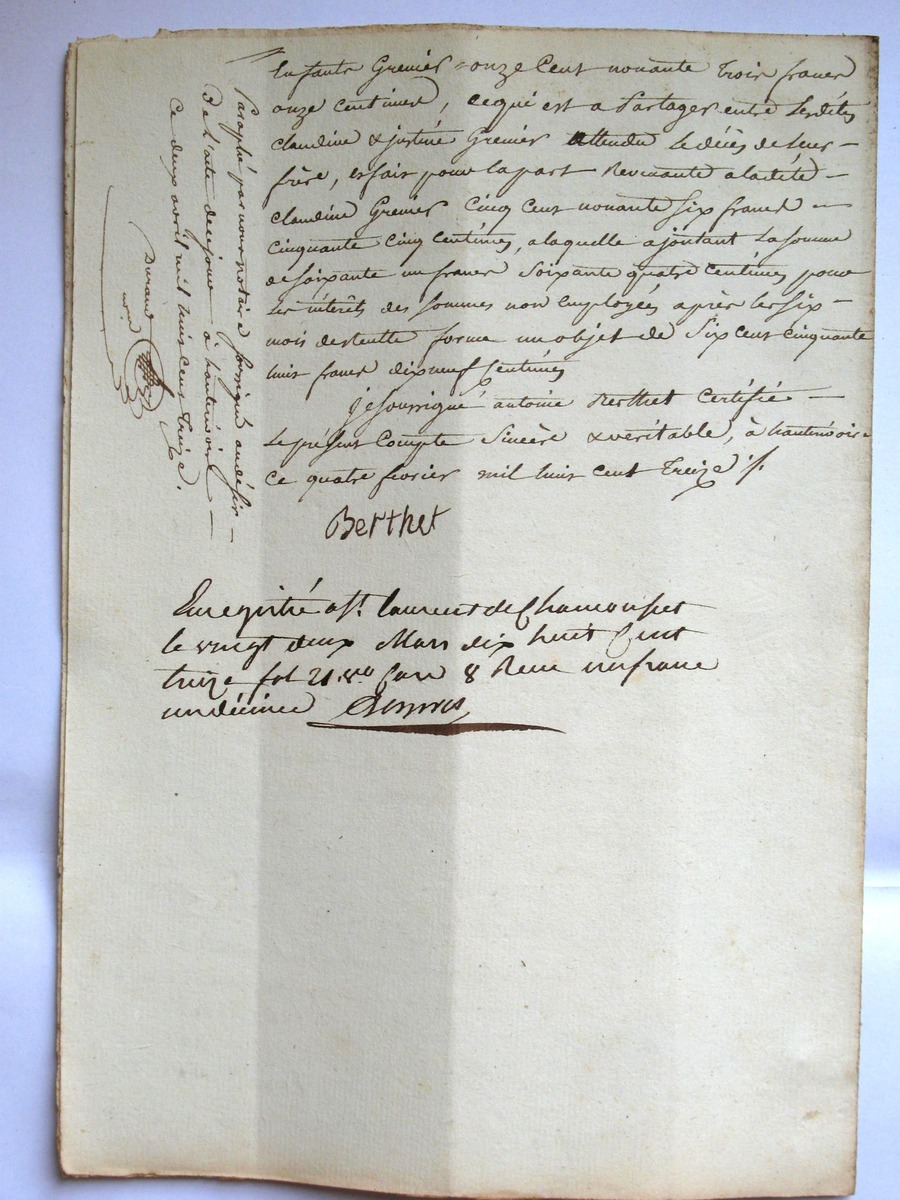 Enfants Grenier onze Cent nonante trois francs
onze centimes, ce qui est a Partager entre Lesdites
claudine & justine Grenier attendu Le décès de Leur -
frère, et fait pour la part Revenante a ladite -
claudine Grenier Cinq Cent nonante Six francs -
cinquante Cinq Centimes, a laquelle ajoutant La Somme
de Soixante un francs Soixante quatre Centimes pour
Les intérêts des sommes non Employées après les Six -
mois de forme un objet de Six Cent Cinquante
huit francs dix neuf Centimes
je soussigné antoine Berthet Certifie -
Le présent Compte Sincère & véritable, à hauterivoire
ce quatre fevrier mil huit cent Treize ./.
Berthet
Enregistré a St. Laurent de Chamousset
le vingt deux Mars dix huit Cent
treize fol 21 vo Case 8 Recu un franc
un décime
Paraphé par nous notaire soussigné au désir -
De l'acte de ce jour à hauterivoire -
Ce deux avril mil huit Cent Treize.
Durand
nore